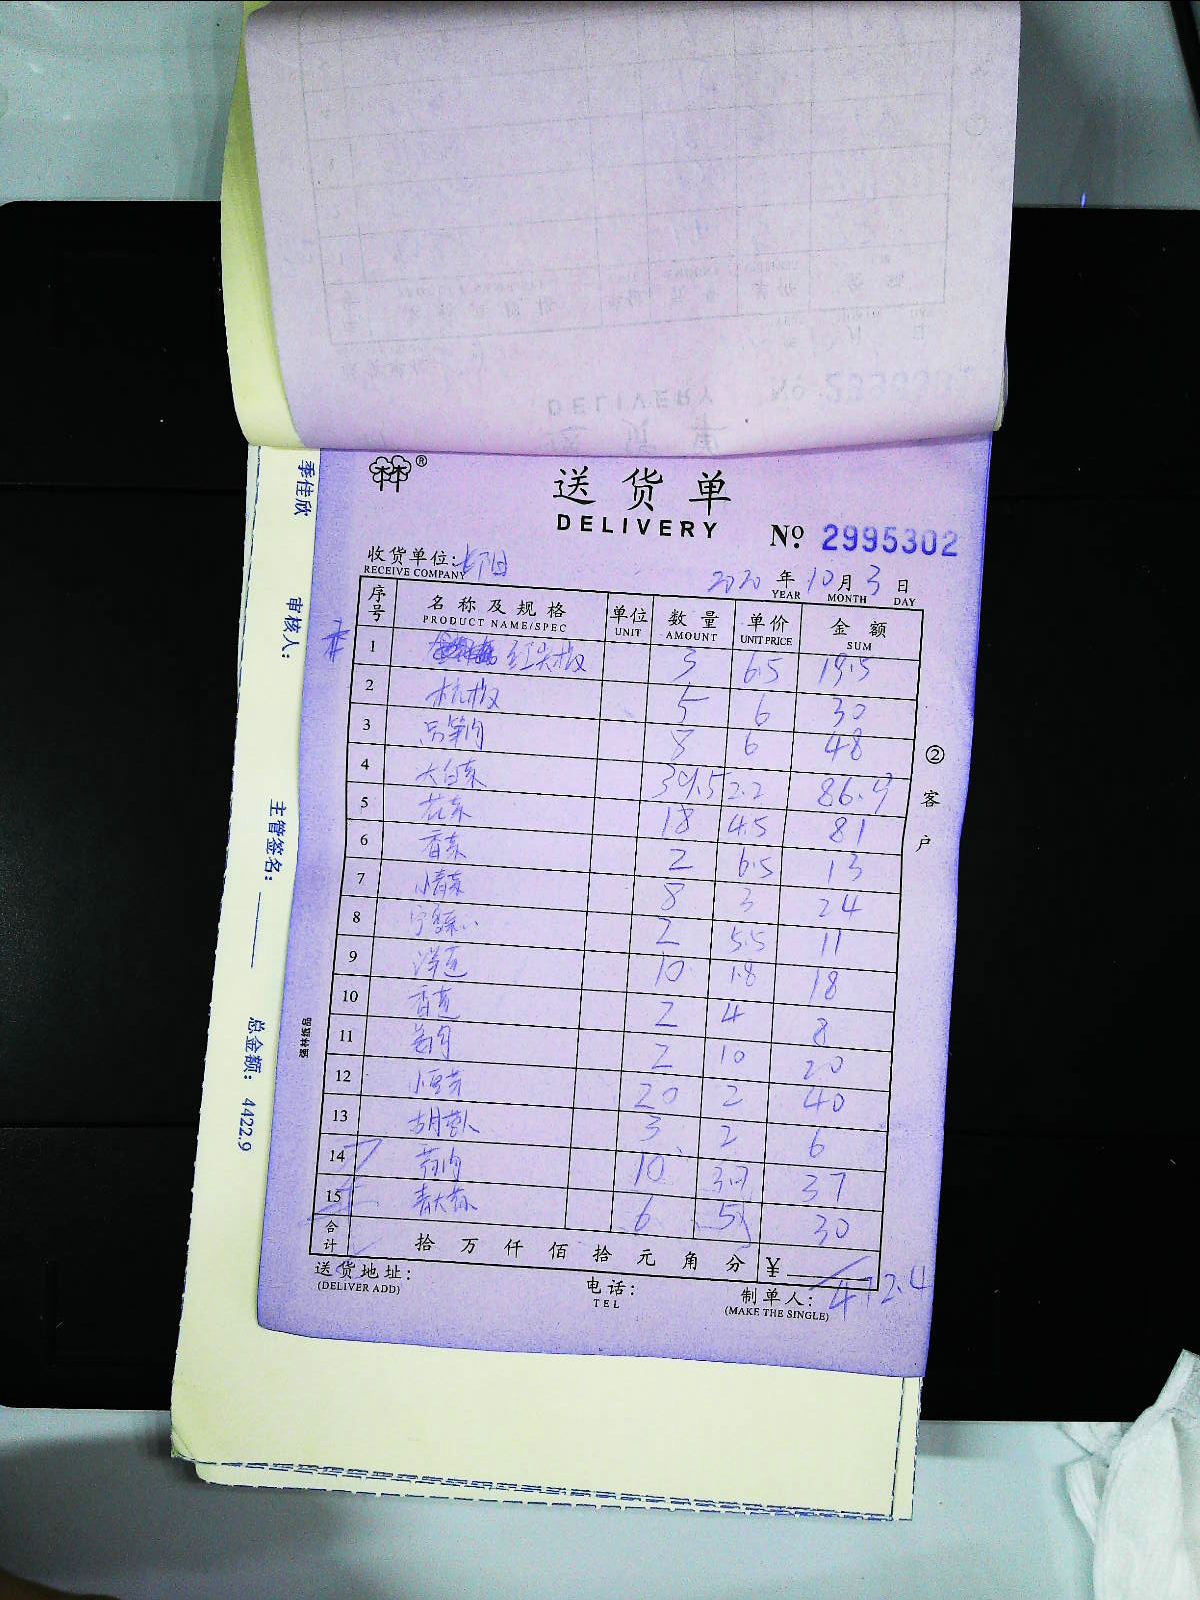 送货单
DELIVERY
No. 2995302
收货单位:
RECEIVE COMPANY
2020 年 10 月 3 日
YEAR MONTH DAY
序号 名称及规格 单位 数量 单价 金额
PRODUCT NAME/SPEC UNIT AMOUNT UNIT PRICE SUM
1 红尖椒 3 6.5 19.5
2 杭椒 5 6 30
3 8 6 48
4 大白菜 39.5 2.2 86.9
5 花菜 18 4.5 81
6 香菜 2 6.5 13
7 小青菜 8 3 24
8 2 5.5 11
9 洋芝 10 1.8 18
10 香芝 2 4 8
11 姜肉 2 10 20
12 小豆芽 20 2 40
13 胡萝卜 3 2 6
14 10 3.7 37
15 青大蒜 6 5 30
合计 拾 万 仟 佰 拾 元 角 分 ¥ 472.4
送货地址:
(DELIVER ADD)
电话:
TEL
制单人:
(MAKE THE SINGLE)
② 客户
强林纸品
季佳欣
审核人:
主管签名:
总金额: 4422.9